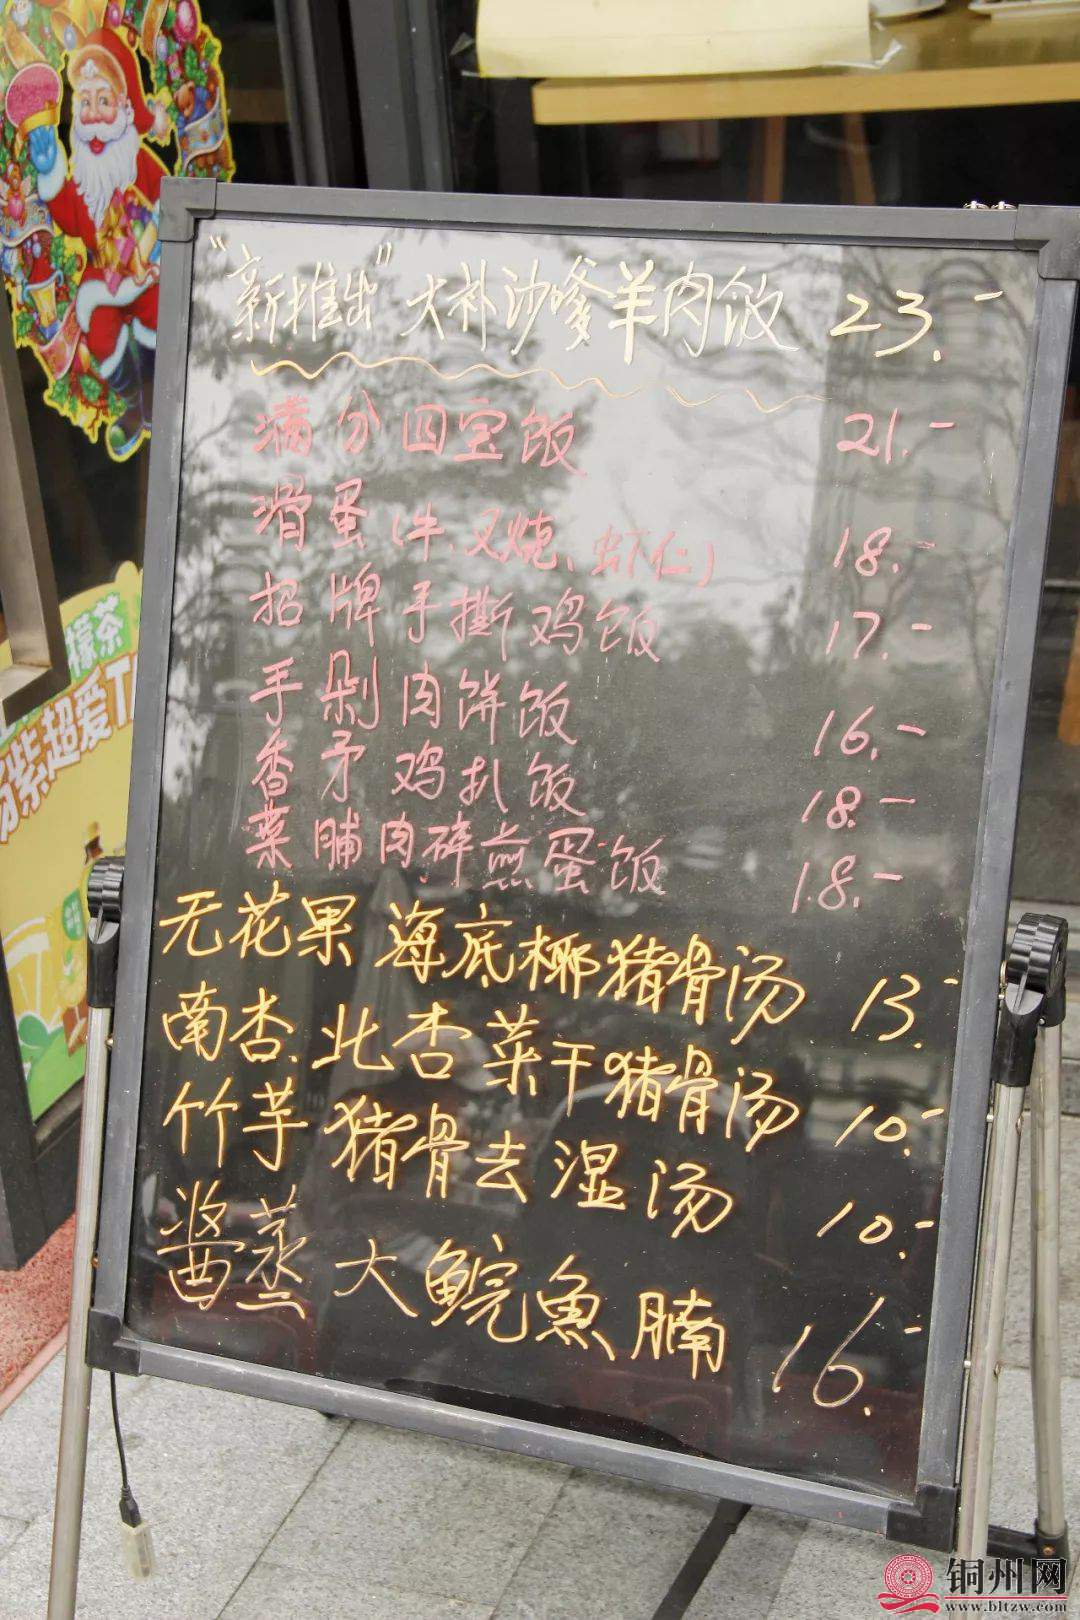 "新推出"大补沙嗲羊肉饭 23.-
满分四宝饭 21.-
滑蛋(牛、叉烧、虾仁) 18.-
招牌手撕鸡饭 17.-
手剁肉饼饭 16.-
香矛鸡扒饭 18.-
菜脯肉碎煎蛋饭 18.-
无花果海底椰猪骨汤 13.-
南杏、北杏菜干猪骨汤 10.-
竹芋猪骨去湿汤 10.-
酱蒸大鲩鱼腩 16.-
檬茶
紫超爱
铜州网
www.bltzw.com